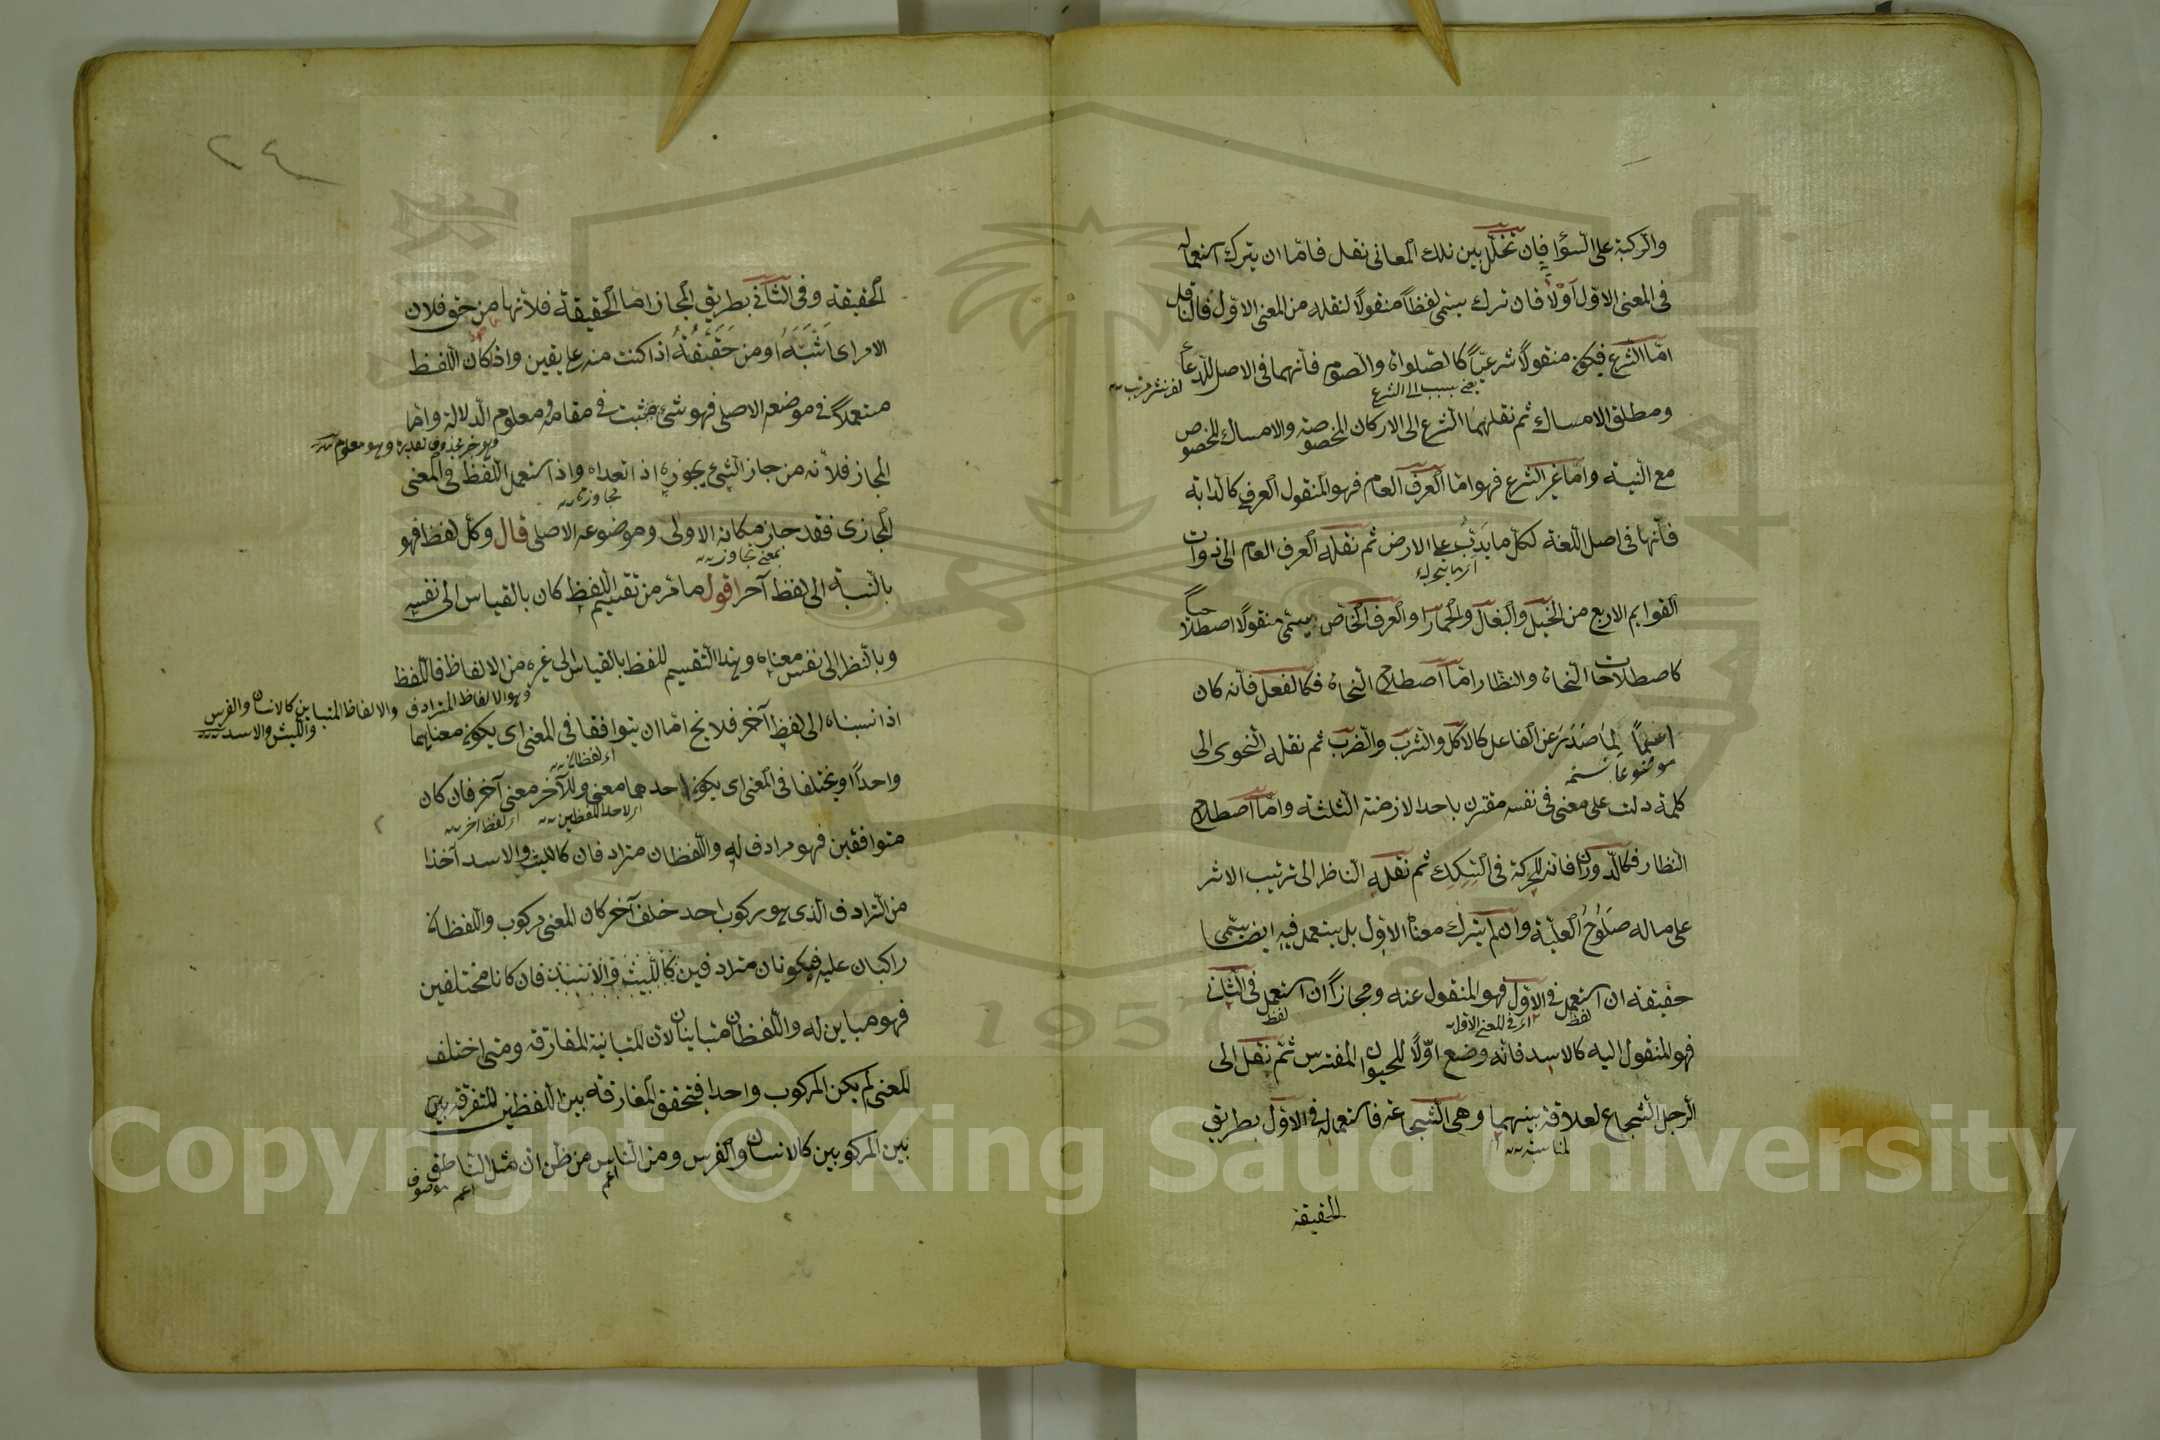 والركبة على السواء فإن تخلل بين تلك المعاني نقل فاما ان يترك استعماله
في المعنى الاول اولا فان ترك يسمى لفظا منقولا لنقله من المعنى الاول فالناقل
اما الشرع فيكون منقولا شرعيا كالصلوة والصوم فانهما في الاصل للدعاء
لف نشر مرتب
يعني بسبب اى الشرع
ومطلق الامساك ثم نقلهما الشرع الى الاركان المخصوصة والامساك المخصوص
مع النية واما غير الشرع فهو اما العرف العام فهو المنقول العرفي كالدابة
فانها في اصل اللغة لكل ما يدب على الارض ثم نقله العرف العام الى ذوات
القوايم الاربع من الخيل والبغال والحمار او العرف الخاص يسمى منقولا اصطلاحيا
كاصطلاحات النحاة والنظار اما اصطلاح النحاة فكالفعل فانه كان
اسما لما صدر عن الفاعل كالاكل والشرب والضرب ثم نقله النحوى الى
موضوعا نسخه
كلمة دلت على معنى في نفسه مقترن باحد الازمنة الثلثة واما اصطلاح
النظار فكالدوران فانه للحركة في السكك ثم نقله الناظر الى ترتيب الاثر
على ماله صلوح العلية وان لم يترك معناه الاول بل يستعمل فيه ايضا يسمى
حقيقة ان استعمل في الاول فهو المنقول عنه ومجازا ان استعمل في الثاني
لفظ اى في المعنى الاول لفظ
فهو المنقول اليه كالاسد فانه وضع اولا للحيوان المفترس ثم نقل الى
الرجل الشجاع لعلاقة بينهما وهى الشجاعة فاستعماله في الاول بطريق
لمناسبة
الحقيقة
٢٤
الحقيقة وفي الثاني بطريق المجاز اما الحقيقة فلانها من حق فلان
الامر اى اثبته او من حققته اذا كنت منه على يقين واذا كان اللفظ
مستعملا في موضعه الاصلى فهو شئ مثبت في مقامه معلوم الدلالة واما
وهو خبر محذوف تقديره وهو معلوم
المجاز فلانه من جاز الشئ يجوزه اذا تعداه واذا استعمل اللفظ في المعنى
تجاوزته
المجازى فقد جاز مكانه الاولى وموضوعه الاصلى قال وكل لفظ فهو
بمعنى تجاوز
بالنسبة الى لفظ آخر اقول ما مر من تقسيم اللفظ كان بالقياس الى نفسه
وبالنظر الى نفس معناه وهذا التقسيم للفظ بالقياس الى غيره من الالفاظ فاللفظ
وهو الالفاظ المترادف والالفاظ المتباين كالانسان والفرس
والليث والاسد
اذا نسبناه الى لفظ آخر فلا يخ اما ان يتوافقا في المعنى اى يكون معناهما
اى لفظان
واحدا او يختلفا في المعنى اى يكون لاحدهما معنى وللآخر معنى آخر فان كان
اى لاحد اللفظين اى لفظ اخر
متوافقين فهو مرادف له واللفظان مترادفان كالليث والاسد آخذا
من الترادف الذى هو ركوب احد خلف آخر كان المعنى مركوب واللفظان
راكبان عليه فيكونان مترادفين كالليث والاسد فان كانا مختلفين
فهو مباين له واللفظان متباينان لان المباينة المفارقة ومتى اختلف
المعنى لم يكن المركوب واحدا فتحقق المفارقة بين اللفظين للتفرقة بين
بين المركوبين كالانسان والفرس ومن الناس من ظن ان مثل الناطق
اعم اعم موصوف
Copyright © King Saud University
1957